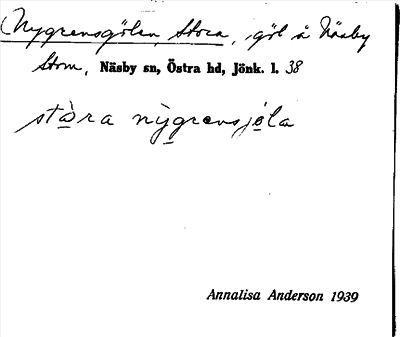 Nygrensgölen, Stora, göl å Näsby
Strm, Näsby sn, Östra hd, Jönk. l. 38
stòra nỳgrensjöla
Annalisa Anderson 1939